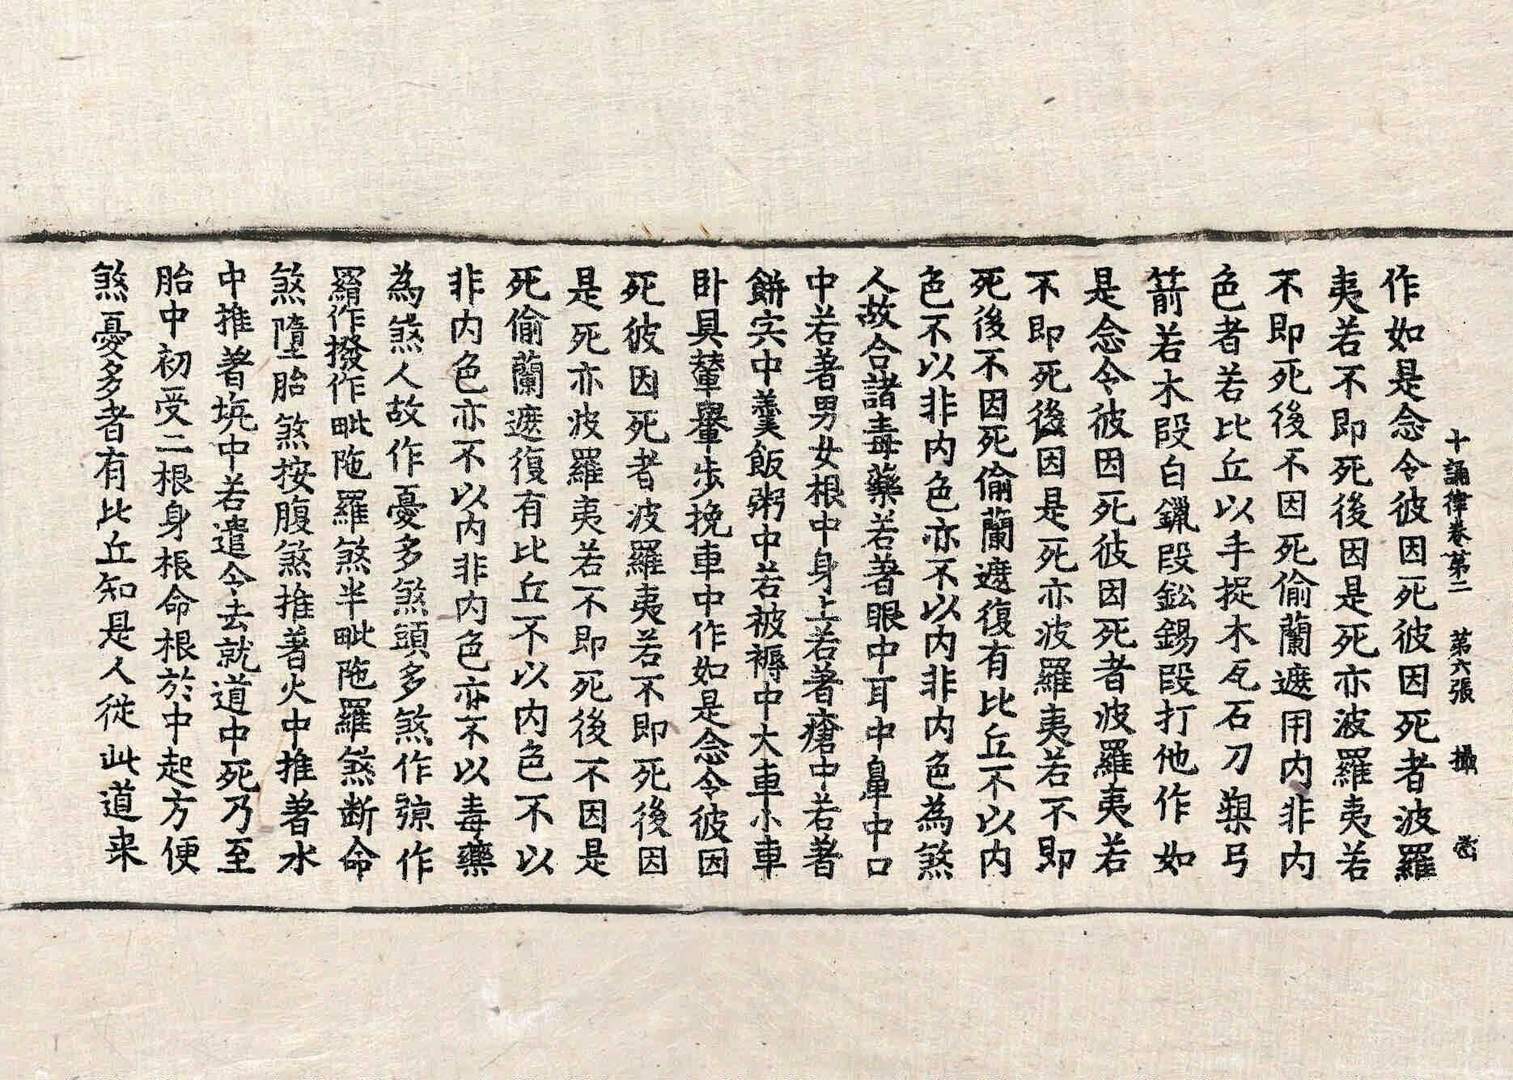 十誦律卷第二　第六張　攝
作如是念令彼因死彼因死者波羅
夷若不即死後因是死亦波羅夷若
不即死後不因死偷蘭遮用內非內
色者若比丘以手捉木瓦石刀槊弓
箭若木段白鑞段鈆錫段打他作如
是念令彼因死彼因死者波羅夷若
不即死後因是死亦波羅夷若不即
死後不因死偷蘭遮復有比丘不以內
色不以非內色亦不以內非內色為煞
人故合諸毒藥若著眼中耳中鼻中口
中若著男女根中身上若著瘡中若著
餅宍中羹飯粥中若被褥中大車小車
卧具輦轝步挽車中作如是念令彼因
死彼因死者波羅夷若不即死後因
是死亦波羅夷若不即死後不因是
死偷蘭遮復有比丘不以內色不以
非內色亦不以內非內色亦不以毒藥
為煞人故作憂多煞頭多煞作弶作
羂作撥作毗陁羅煞半毗陁羅煞断命
煞墮胎煞按腹煞推著火中推著水
中推著坑中若遣令去就道中死乃至
胎中初受二根身根命根於中起方便
煞憂多者有比丘知是人從此道来